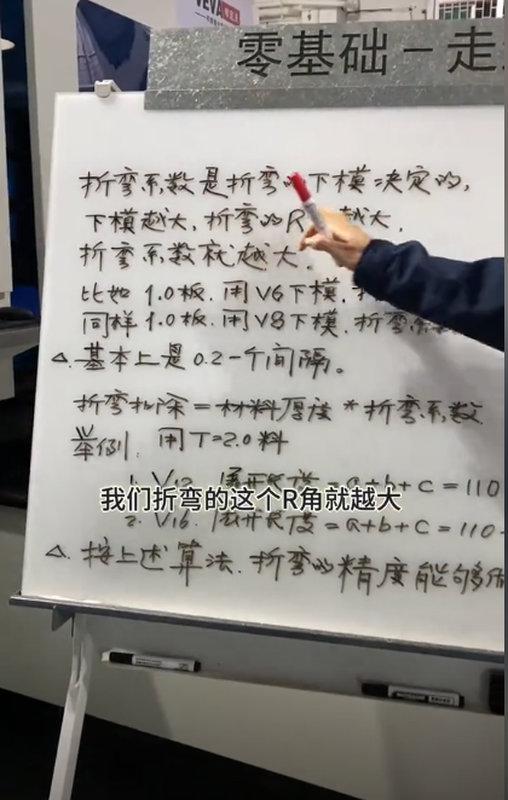 VEVA
零基础－走
折弯系数是折弯的下模决定的,
下模越大,折弯的R 越大,
折弯系数就越大.
比如 1.0板.用V6下模.
同样 1.0板.用V8下模.折弯系数
△.基本上是0.2一个间隔。
折弯扣除=材料厚度*折弯系数.
举例: 用T=2.0料
1. V12. 展开长度=a+b+c=110
我们折弯的这个R角就越大
2. V16. 展开长度=a+b+c=110-
△.按上述算法.折弯的精度能够